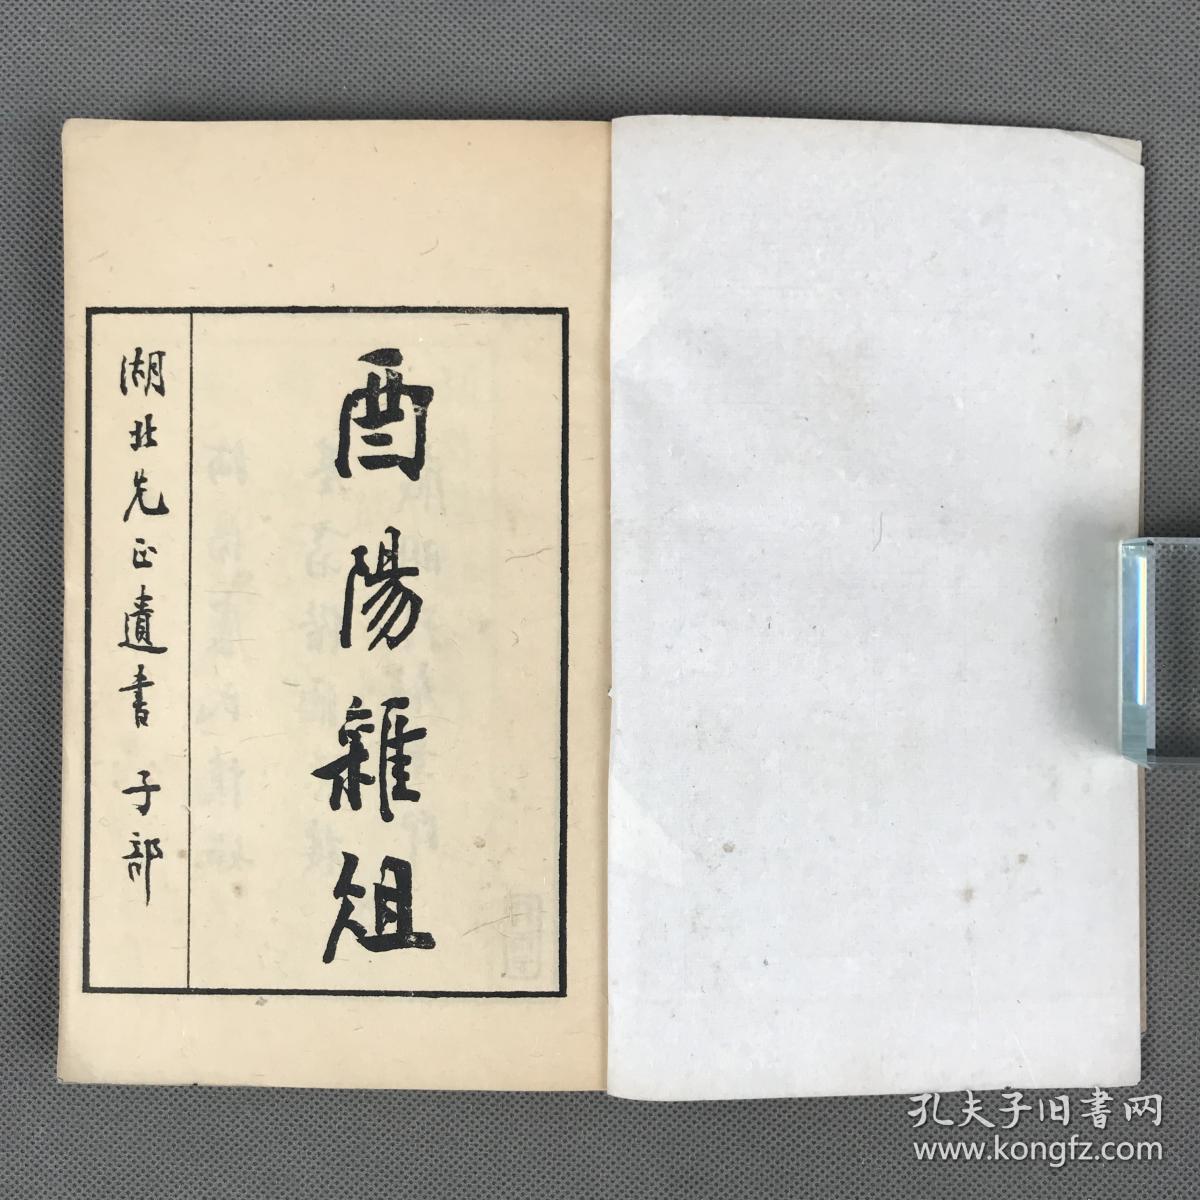 酉陽雜俎
湖北先正遺書 子部
孔夫子旧書网
www.kongfz.com